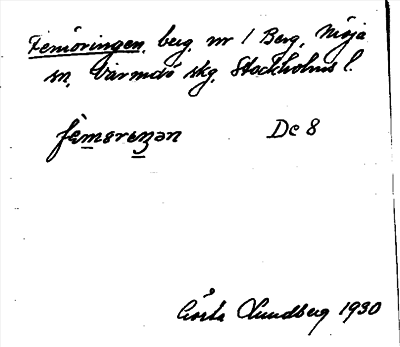 Femöringen, berg, nr 1 Berg, Nisja
sn, Värmdö skg, Stockholms l.
fèmөreŋən De 8
Gösta Lundberg 1930